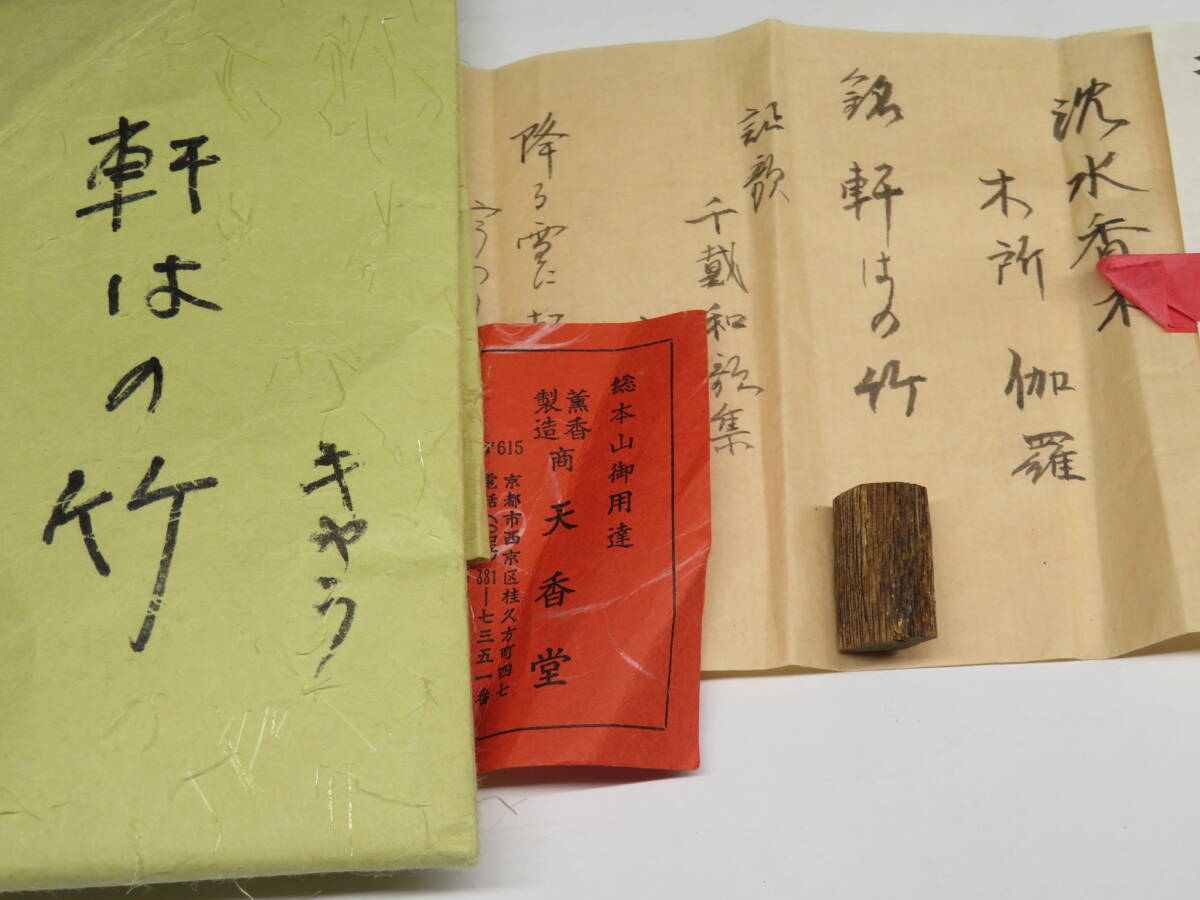 軒はの竹
きやら
沈水香木
木所 伽羅
銘 軒はの竹
証歌
千載和歌集
降る雪に
総本山御用達
薫香
製造
商 天香堂
〒615
京都市西京区桂久方町四七
電話
381―七三五一番